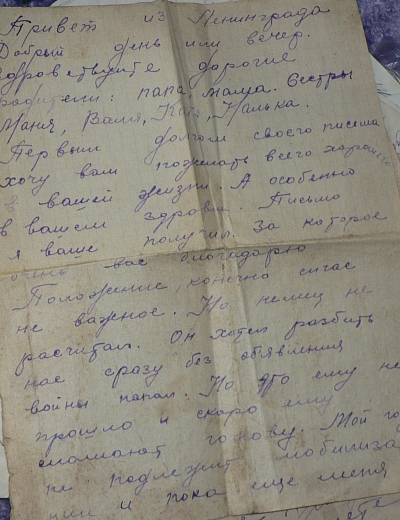 Привет из Ленинграда
Добрый день или вечер.
Здравствуйте дорогие
родители: папа, мама. Сестры
Маня, Валя, Катя, Галька.
Первым долгом своего письма
хочу вам пожелать всего хорошего
в вашей жизни. А особенно
в вашем здравии. Письмо
я ваше получил. За которое
очень вас благодарю
Положение, конечно сичас
не важное. Но немец не
расчитал. Он хотел разбить
нас сразу без обявления
войны напал. Но это ему не
прошло и скоро ему
сломают голову. Мой го
не подлежит мобилиза
ции и пока еще меня